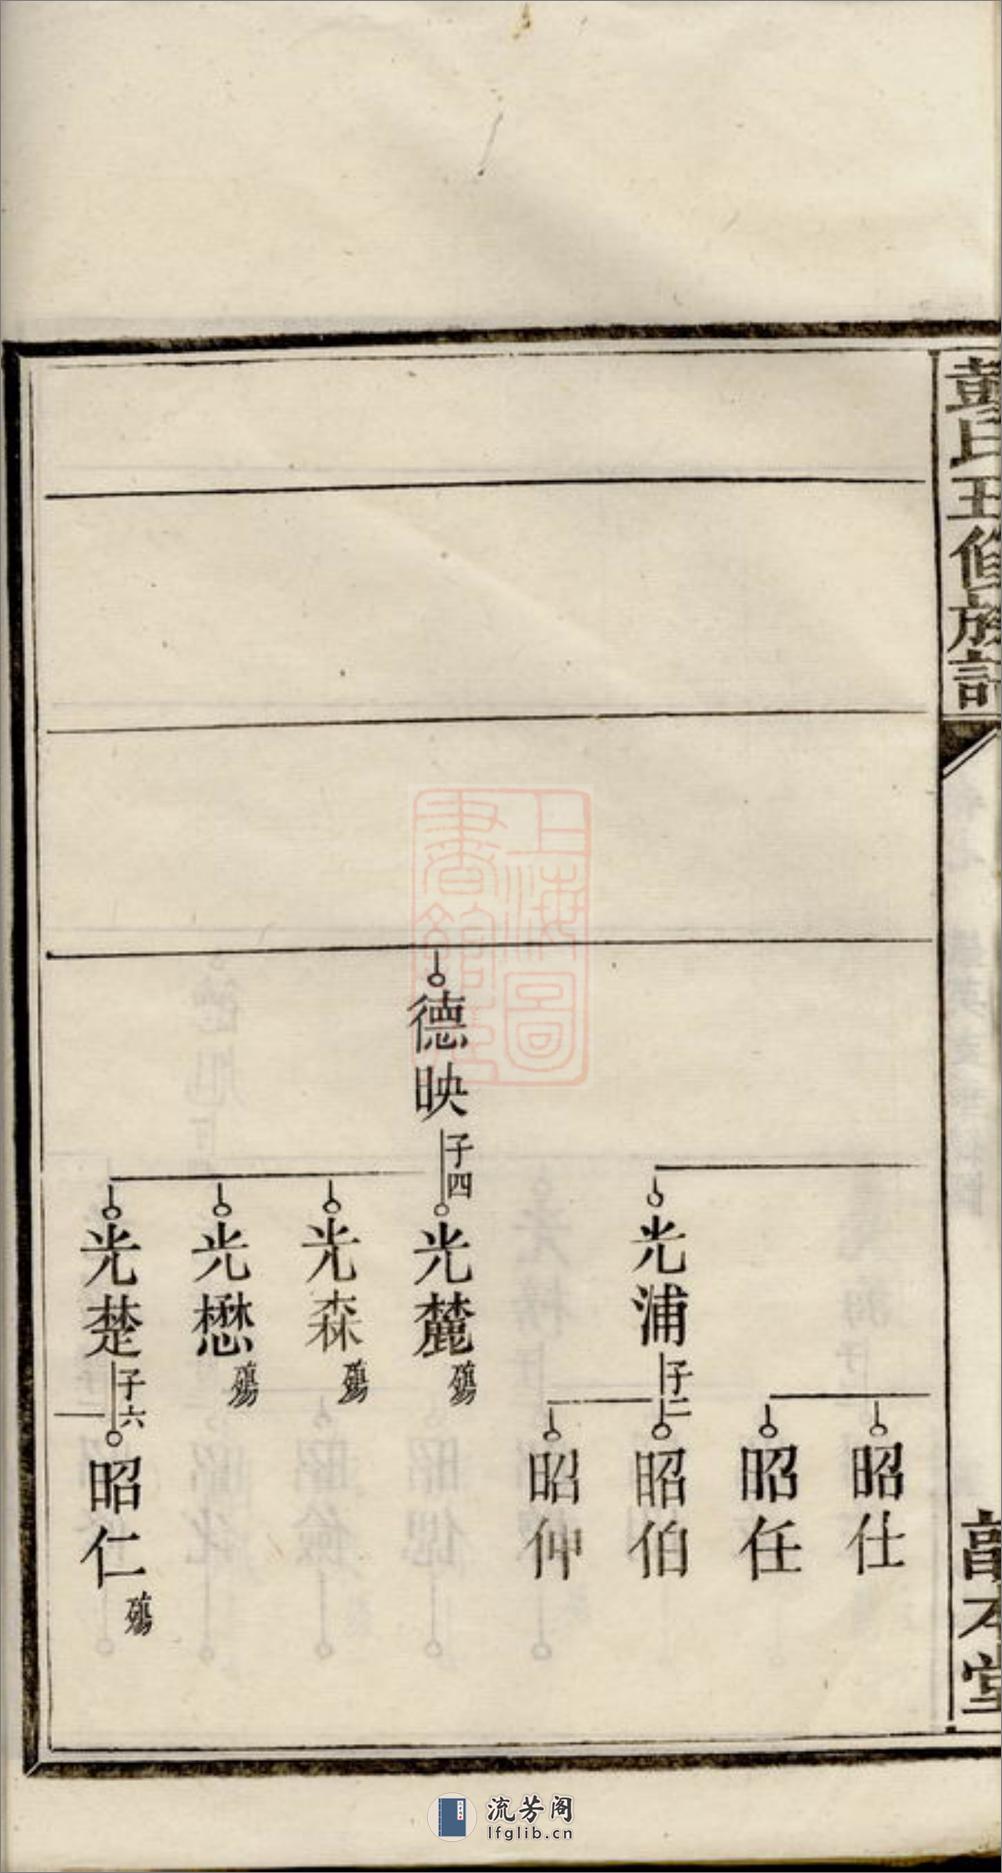 彭氏五修族譜
敦本堂
昭仕
昭任
光浦 子二
昭伯
昭仲
德映 子四
光麓 殤
光森 殤
光懋 殤
光楚 子六
昭仁 殤
上海圖
書館藏
流芳阁
lfglib.cn